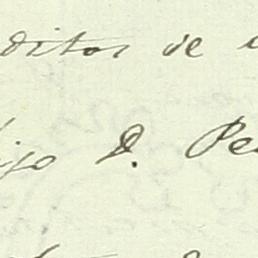 ditos de
ijo D. Pe